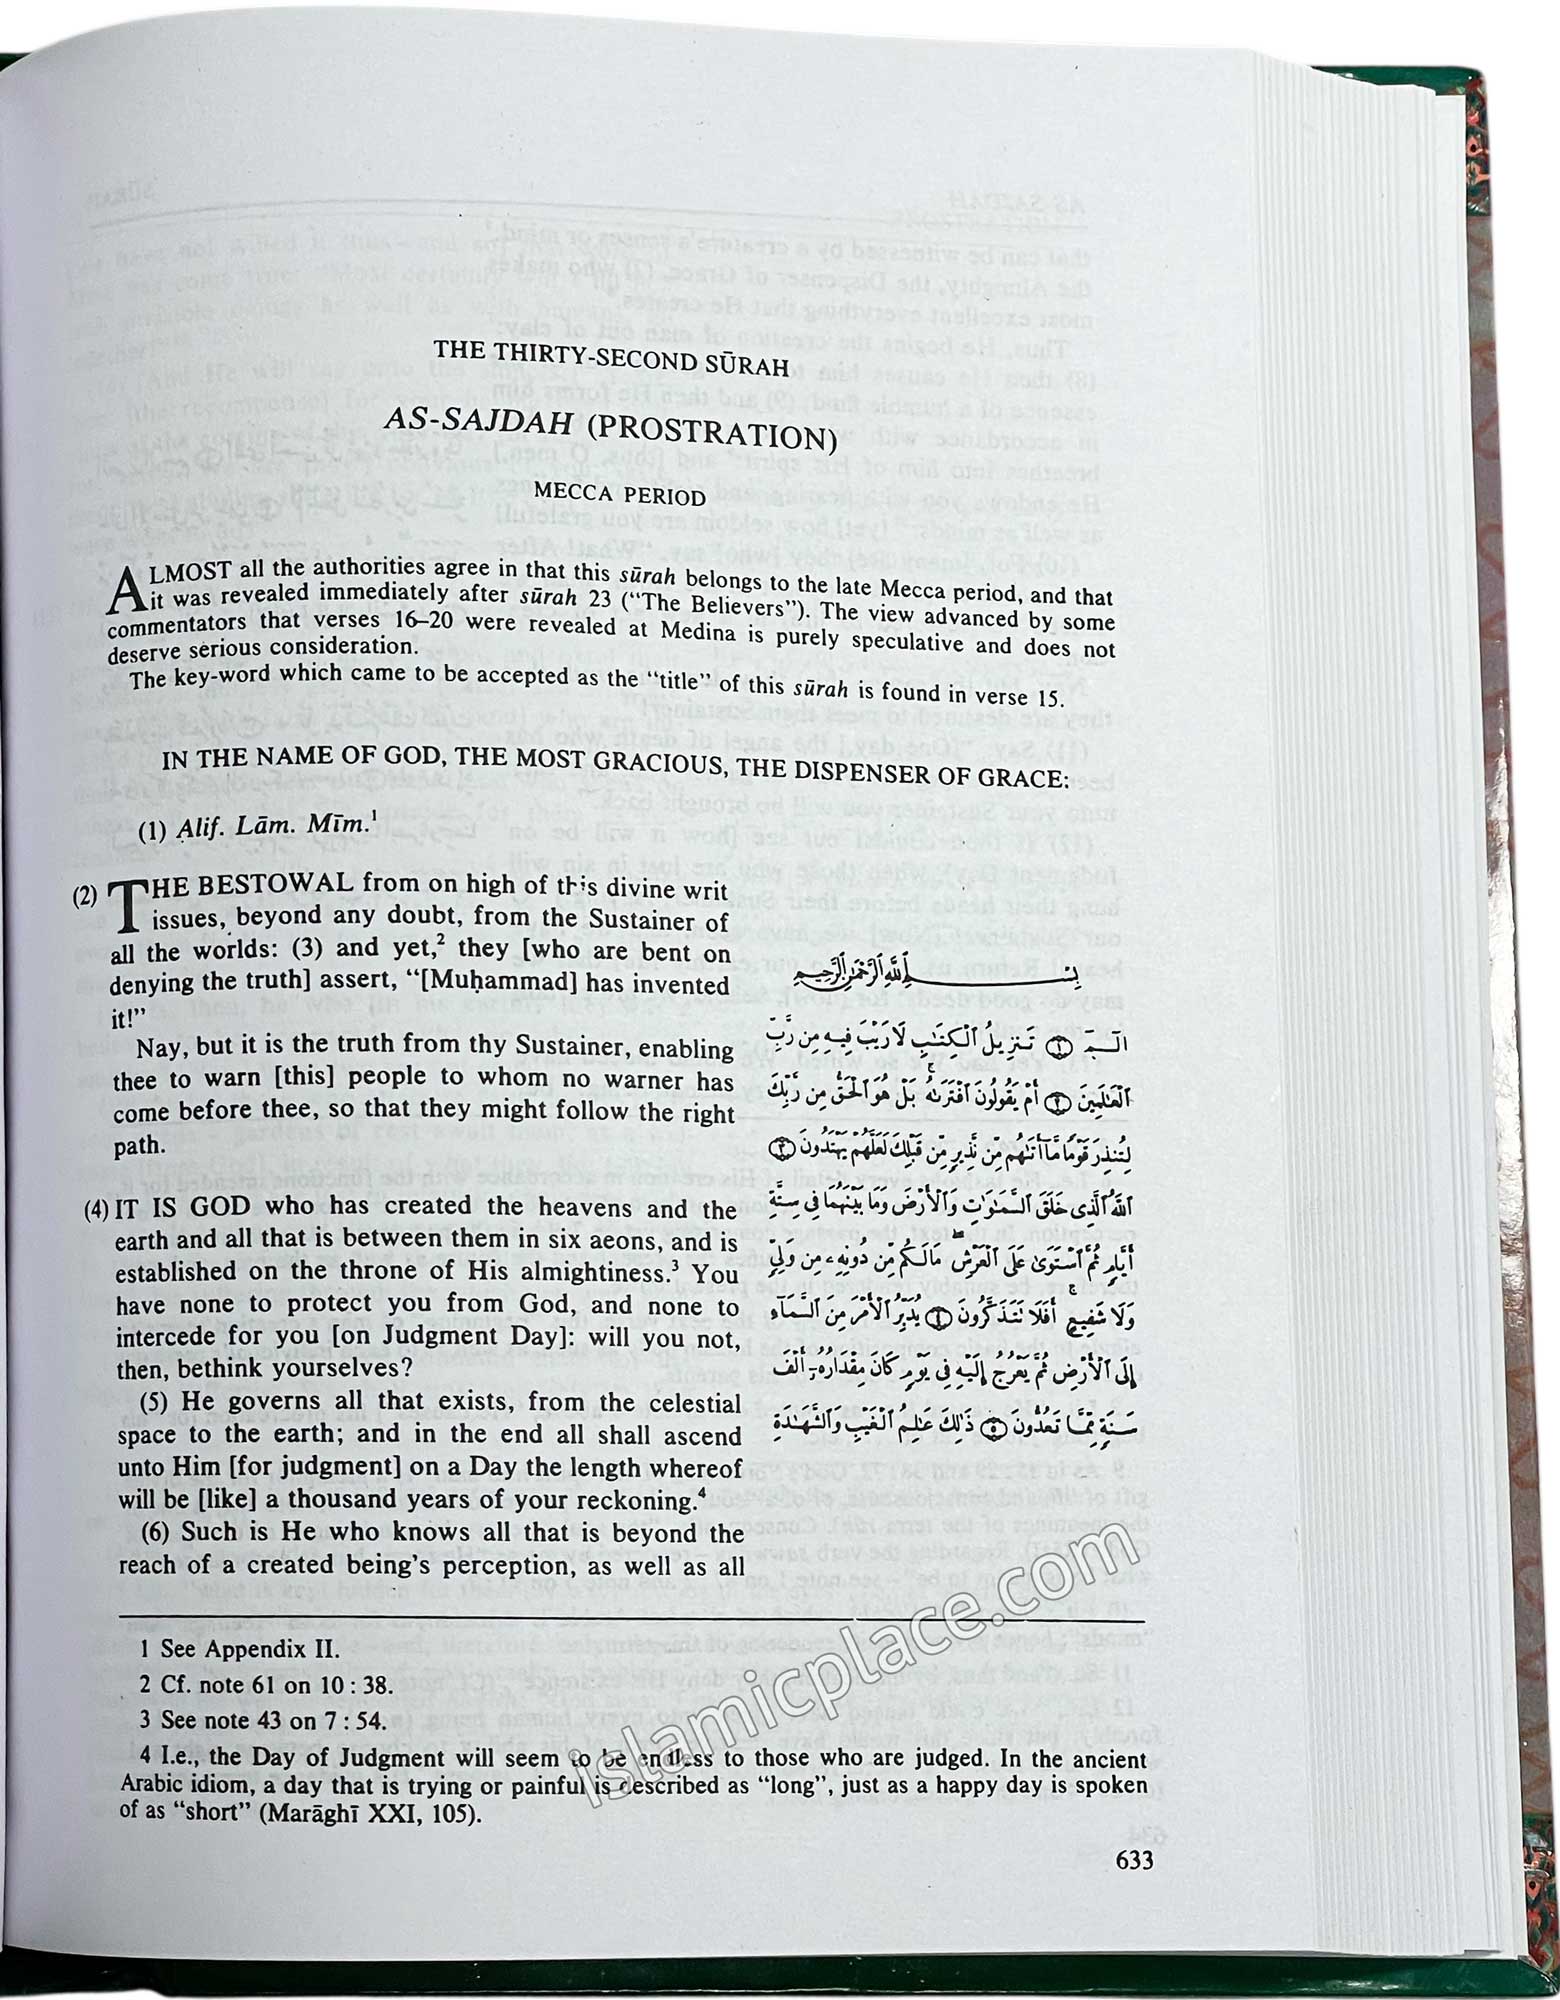 THE THIRTY-SECOND SŪRAH
AS-SAJDAH (PROSTRATION)
MECCA PERIOD
ALMOST all the authorities agree in that this sūrah belongs to the late Mecca period, and that
it was revealed immediately after sūrah 23 (“The Believers”). The view advanced by some
commentators that verses 16–20 were revealed at Medina is purely speculative and does not
deserve serious consideration.
The key-word which came to be accepted as the “title” of this sūrah is found in verse 15.
IN THE NAME OF GOD, THE MOST GRACIOUS, THE DISPENSER OF GRACE:
(1) Alif. Lām. Mīm.¹
(2) THE BESTOWAL from on high of this divine writ
issues, beyond any doubt, from the Sustainer of
all the worlds: (3) and yet,² they [who are bent on
denying the truth] assert, “[Muḥammad] has invented
it!”
Nay, but it is the truth from thy Sustainer, enabling
thee to warn [this] people to whom no warner has
come before thee, so that they might follow the right
path.
(4) IT IS GOD who has created the heavens and the
earth and all that is between them in six aeons, and is
established on the throne of His almightiness.³ You
have none to protect you from God, and none to
intercede for you [on Judgment Day]: will you not,
then, bethink yourselves?
(5) He governs all that exists, from the celestial
space to the earth; and in the end all shall ascend
unto Him [for judgment] on a Day the length whereof
will be [like] a thousand years of your reckoning.⁴
(6) Such is He who knows all that is beyond the
reach of a created being’s perception, as well as all
بِسْمِ ٱللَّهِ ٱلرَّحْمَٰنِ ٱلرَّحِيمِ
الٓمٓ ١ تَنزِيلُ ٱلْكِتَٰبِ لَا رَيْبَ فِيهِ مِن رَّبِّ
ٱلْعَٰلَمِينَ ٢ أَمْ يَقُولُونَ ٱفْتَرَىٰهُ ۚ بَلْ هُوَ ٱلْحَقُّ مِن رَّبِّكَ
لِتُنذِرَ قَوْمًا مَّآ أَتَىٰهُم مِّن نَّذِيرٍ مِّن قَبْلِكَ لَعَلَّهُمْ يَهْتَدُونَ ٣
ٱللَّهُ ٱلَّذِى خَلَقَ ٱلسَّمَٰوَٰتِ وَٱلْأَرْضَ وَمَا بَيْنَهُمَا فِى سِتَّةِ
أَيَّامٍ ثُمَّ ٱسْتَوَىٰ عَلَى ٱلْعَرْشِ ۖ مَا لَكُم مِّن دُونِهِۦ مِن وَلِىٍّ
وَلَا شَفِيعٍ ۚ أَفَلَا تَتَذَكَّرُونَ ٤ يُدَبِّرُ ٱلْأَمْرَ مِنَ ٱلسَّمَآءِ
إِلَى ٱلْأَرْضِ ثُمَّ يَعْرُجُ إِلَيْهِ فِى يَوْمٍ كَانَ مِقْدَارُهُۥٓ أَلْفَ
سَنَةٍ مِّمَّا تَعُدُّونَ ٥ ذَٰلِكَ عَٰلِمُ ٱلْغَيْبِ وَٱلشَّهَٰدَةِ
1 See Appendix II.
2 Cf. note 61 on 10 : 38.
3 See note 43 on 7 : 54.
4 I.e., the Day of Judgment will seem to be endless to those who are judged. In the ancient
Arabic idiom, a day that is trying or painful is described as “long”, just as a happy day is spoken
of as “short” (Marāghī XXI, 105).
633
islamicplace.com